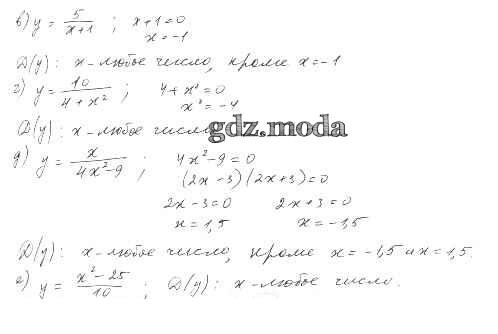 в) y = 5/(x+1) ; x+1=0
x=-1
D(y): x-любое число, кроме x=-1
г) y = 10/(4+x²) ; 4+x²=0
x²=-4
D(y): x-любое число
gdz.moda
д) y = x/(4x²-9) ; 4x²-9=0
(2x-3)(2x+3)=0
2x-3=0 2x+3=0
x=1,5 x=-1,5
D(y): x-любое число, кроме x=-1,5 и x=1,5.
е) y = (x²-25)/10 ; D(y): x-любое число.